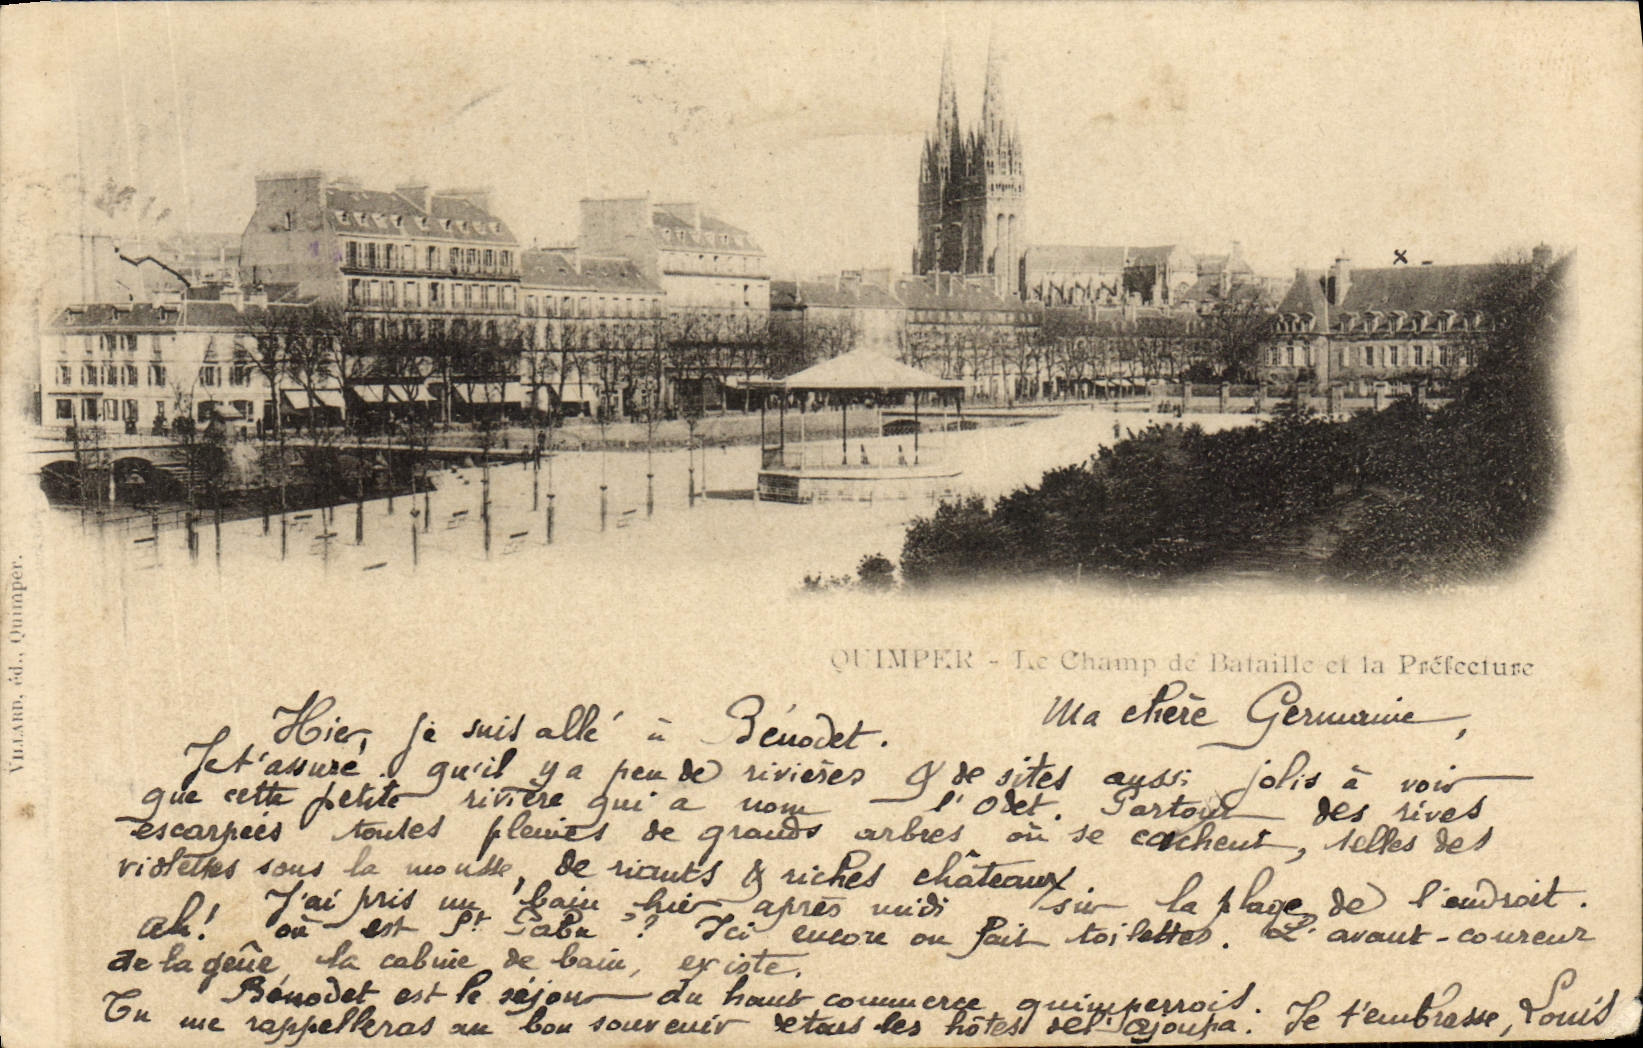 VILLARD, éd., Quimper.
QUIMPER - Le Champ de Bataille et la Préfecture
Ma chère Germaine,
Hier, je suis allé à Bénodet.
Je t'assure qu'il y a peu de rivières & de sites aussi jolis à voir
que cette petite rivière qui a nom l'Odet. Partout des rives
escarpées toutes pleines de grands arbres où se cachent, telles des
violettes sous la mousse, de riants & riches châteaux
J'ai pris un bain hier après midi sur la plage de l'endroit.
Ah! où est St Pabu? Ici encore on fait toilettes. L'avant-coureur
de la gêne, la cabine de bain, existe.
Bénodet est le séjour du haut commerce quimperrois.
Tu me rappelleras au bon souvenir de tous les hôtes de l'ajoupa. Je t'embrasse, Louis